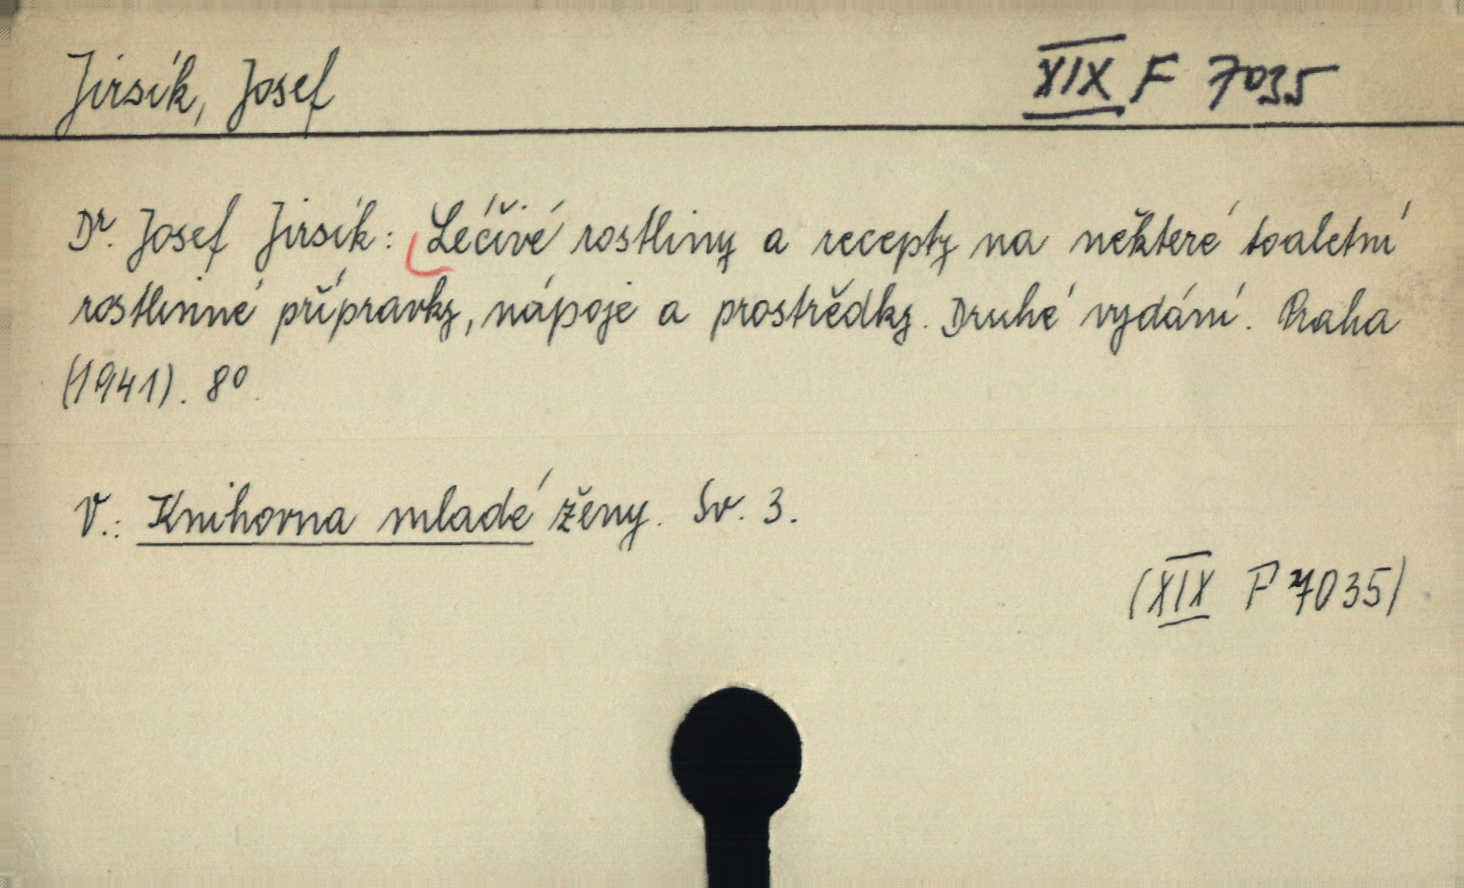 Jirsík, Josef
XIX F 7035
Dr. Josef Jirsík: Léčivé rostliny a recepty na některé toaletní
rostlinné přípravky, nápoje a prostředky. Druhé vydání. Praha
(1941). 8°.
V.: Knihovna mladé ženy. Sv. 3.
(XIX F 7035)